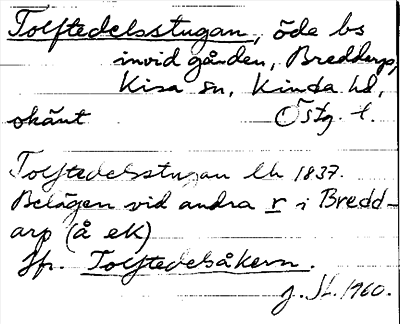 Tolftedelsstugan, öde bs
invid gården, Breddarp,
Kisa sn, Kinda hd,
okänt Östg. l.
Tolftedelsstugan lh 1837.
Belägen vid andra r i Bredd-
arp (å ek)
Jfr. Tolftedelsåkern.
J. Sl. 1960.